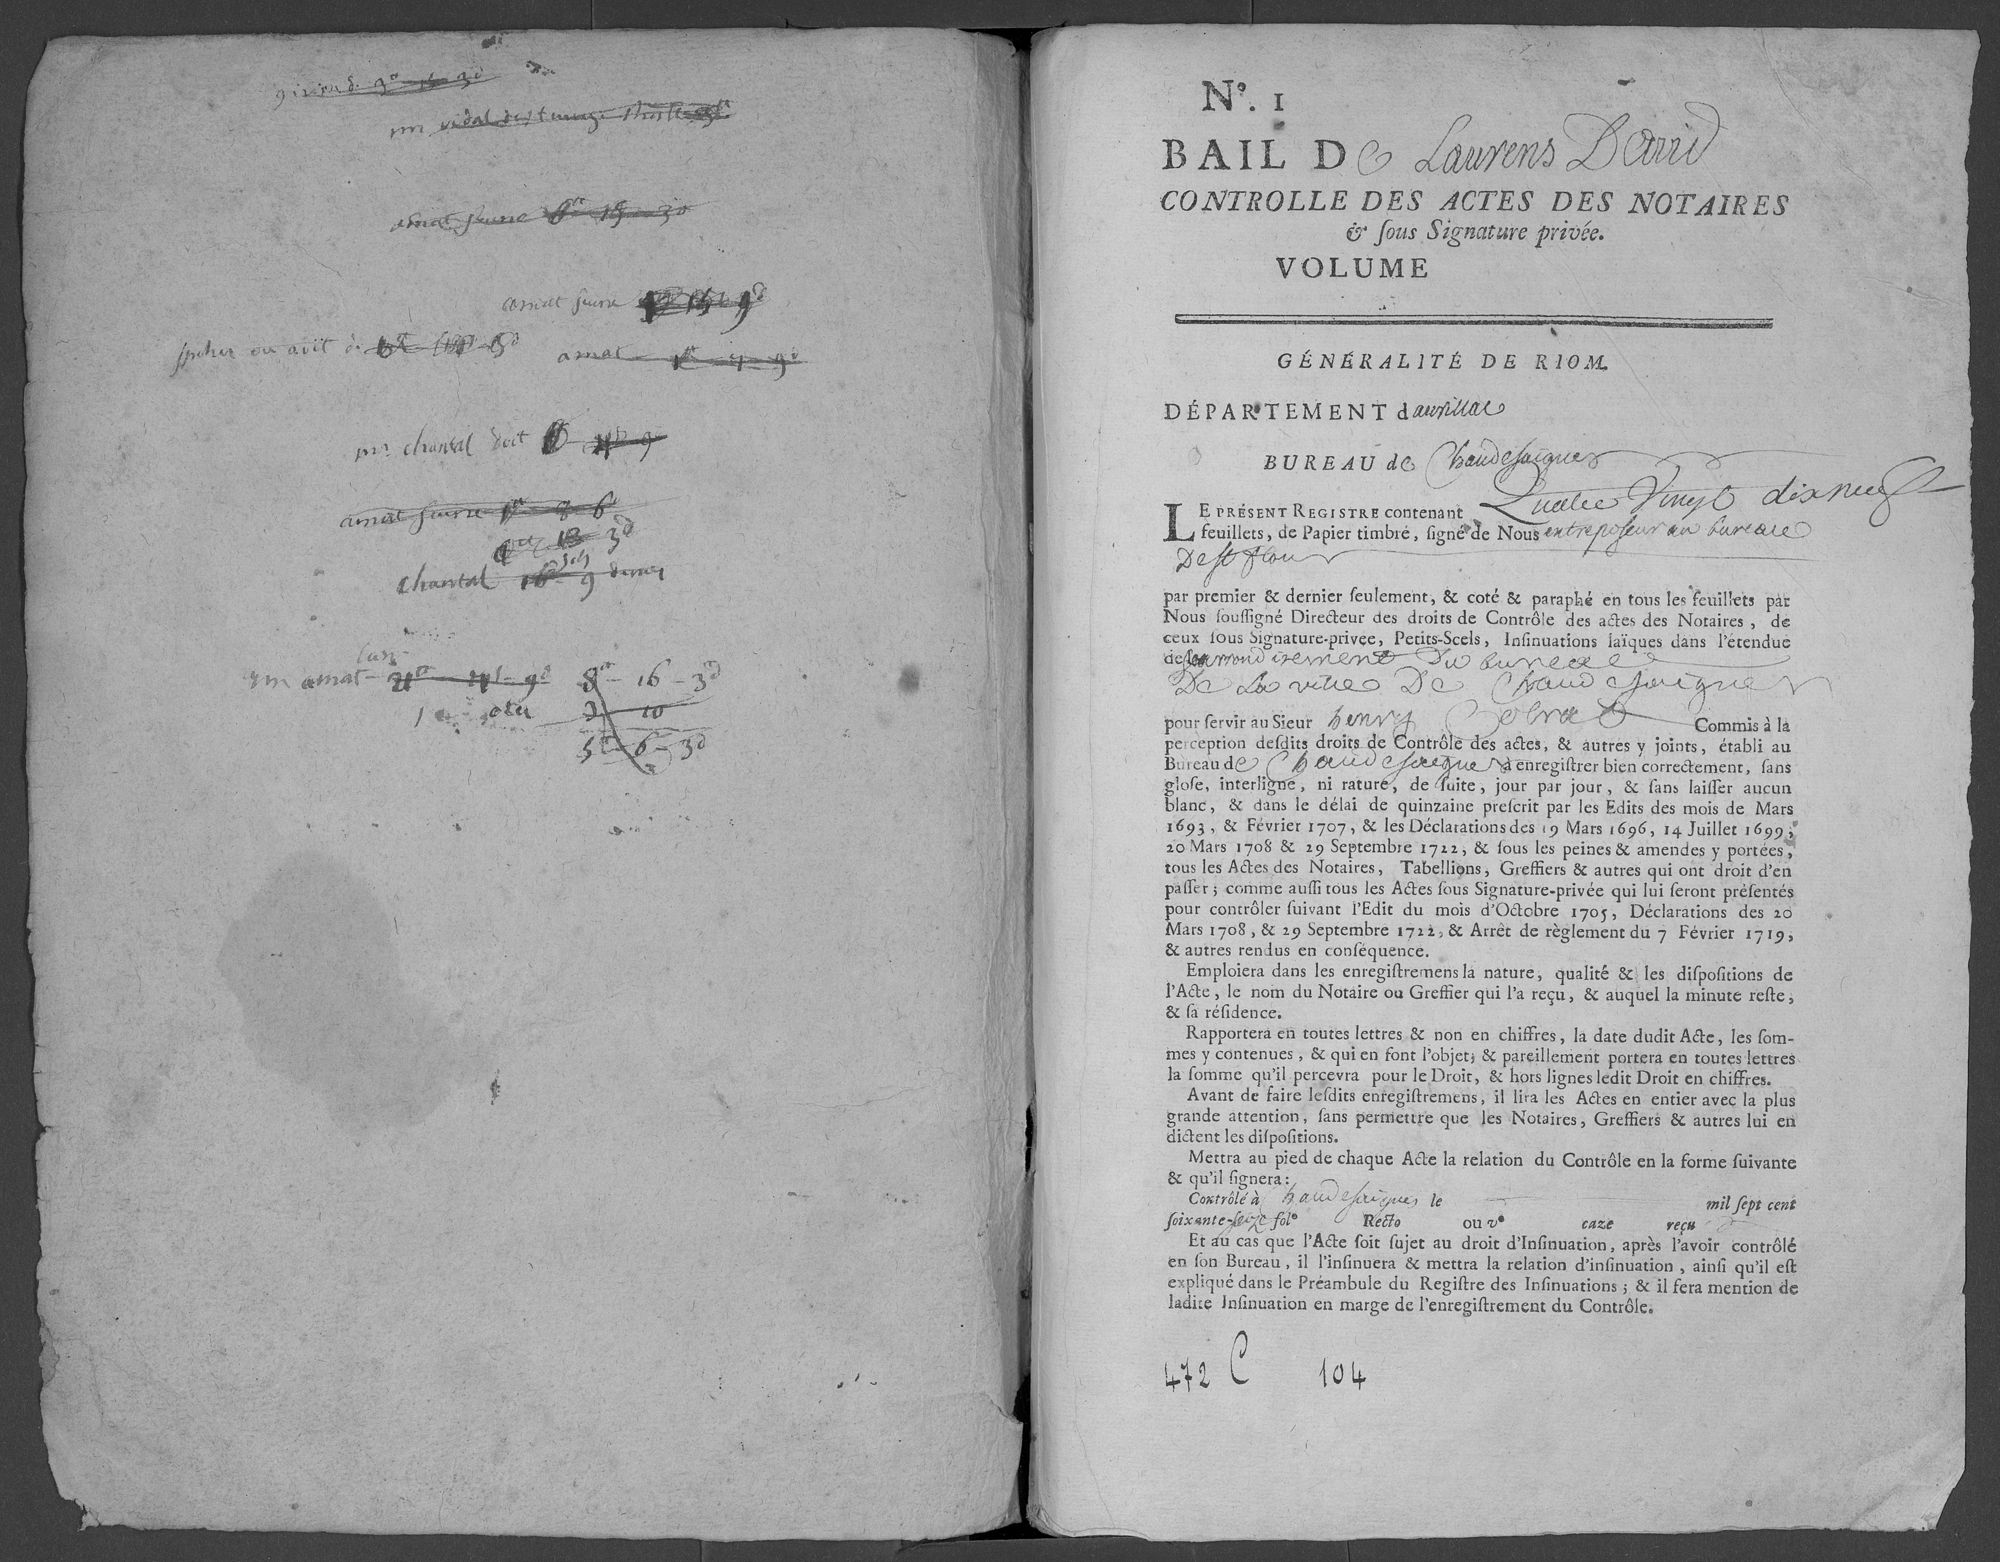 amat
mr chantal doit
chantal 16s 9 deniers
mr amat 8# - 16 - 3d
10
5# - 6 - 3d
N°. 1
BAIL De Laurens David
CONTROLLE DES ACTES DES NOTAIRES
& ſous Signature privée.
VOLUME
GÉNÉRALITÉ DE RIOM.
DÉPARTEMENT daurillac
BUREAU de Chaudesaigues
LE PRÉSENT REGISTRE contenant Quatre Vingt dix neuf
feuillets, de Papier timbré, ſigné de Nous entreposeur au bureau
De st flour
par premier & dernier ſeulement, & coté & paraphé en tous les feuillets par
Nous ſouſſigné Directeur des droits de Contrôle des actes des Notaires, de
ceux ſous Signature-privée, Petits-Scels, Inſinuations laïques dans l'étendue
de larrondisement Du bureau
De La ville De Chaudesaigues
pour ſervir au Sieur henry Commis à la
perception deſdits droits de Contrôle des actes, & autres y joints, établi au
Bureau de Chaudesaigues à enregiſtrer bien correctement, ſans
gloſe, interligne, ni rature, de ſuite, jour par jour, & ſans laiſſer aucun
blanc, & dans le délai de quinzaine preſcrit par les Edits des mois de Mars
1693, & Février 1707, & les Déclarations des 19 Mars 1696, 14 Juillet 1699;
20 Mars 1708 & 29 Septembre 1722, & ſous les peines & amendes y portées,
tous les Actes des Notaires, Tabellions, Greffiers & autres qui ont droit d'en
paſſer; comme auſſi tous les Actes ſous Signature-privée qui lui ſeront préſentés
pour contrôler ſuivant l'Edit du mois d'Octobre 1705, Déclarations des 20
Mars 1708, & 29 Septembre 1722, & Arrêt de règlement du 7 Février 1719,
& autres rendus en conſéquence.
Emploiera dans les enregiſtremens la nature, qualité & les diſpoſitions de
l'Acte, le nom du Notaire ou Greffier qui l'a reçu, & auquel la minute reſte,
& ſa réſidence.
Rapportera en toutes lettres & non en chiffres, la date dudit Acte, les ſom-
mes y contenues, & qui en font l'objet; & pareillement portera en toutes lettres
la ſomme qu'il percevra pour le Droit, & hors lignes ledit Droit en chiffres.
Avant de faire leſdits enregiſtremens, il lira les Actes en entier avec la plus
grande attention, ſans permettre que les Notaires, Greffiers & autres lui en
dictent les diſpoſitions.
Mettra au pied de chaque Acte la relation du Contrôle en la forme ſuivante
& qu'il ſignera:
Contrôlé à Chaudesaigues le mil ſept cent
ſoixante-seize fol° Recto ou v° caze reçu
Et au cas que l'Acte ſoit ſujet au droit d'Inſinuation, après l'avoir contrôlé
en ſon Bureau, il l'inſinuera & mettra la relation d'inſinuation, ainſi qu'il eſt
expliqué dans le Préambule du Regiſtre des Inſinuations; & il fera mention de
ladite Inſinuation en marge de l'enregiſtrement du Contrôle.
472 C 104